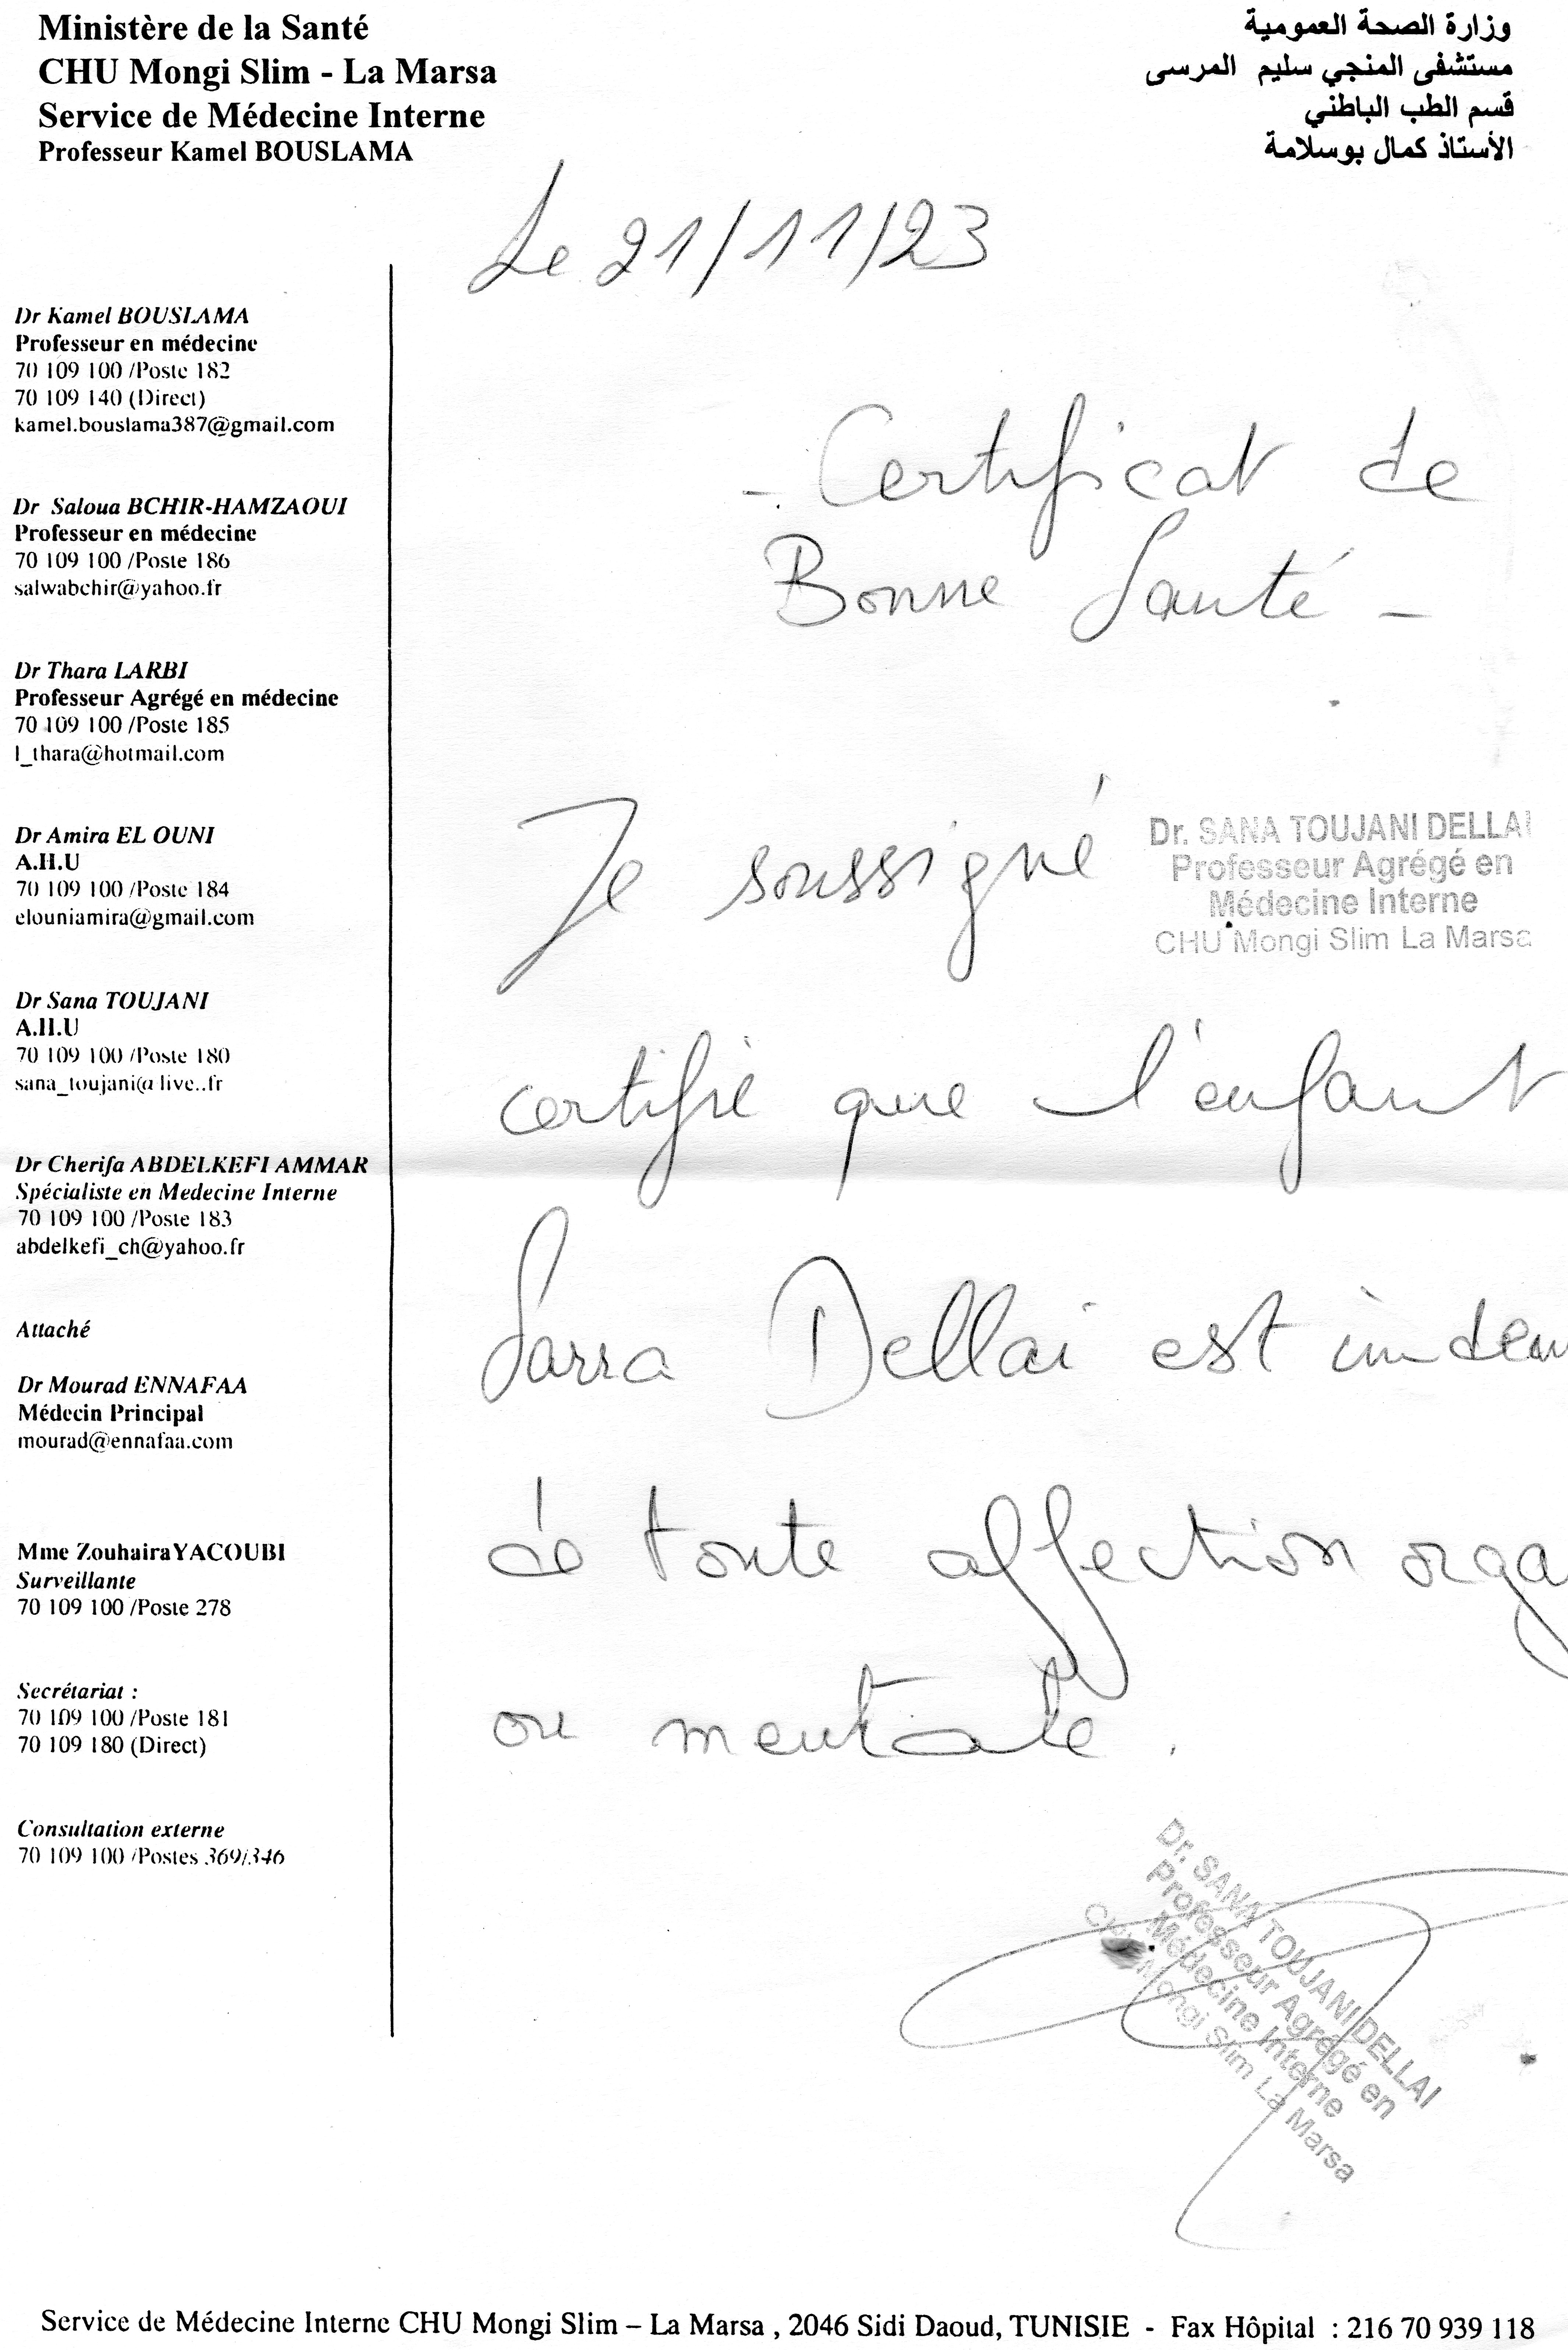 Ministère de la Santé
CHU Mongi Slim - La Marsa
Service de Médecine Interne
Professeur Kamel BOUSLAMA
وزارة الصحة العمومية
مستشفى المنجي سليم المرسى
قسم الطب الباطني
الأستاذ كمال بوسلامة
Le 21/11/23
Dr Kamel BOUSLAMA
Professeur en médecine
70 109 100 /Poste 182
70 109 140 (Direct)
kamel.bouslama387@gmail.com
Dr Saloua BCHIR-HAMZAOUI
Professeur en médecine
70 109 100 /Poste 186
salwabchir@yahoo.fr
Dr Thara LARBI
Professeur Agrégé en médecine
70 109 100 /Poste 185
l_thara@hotmail.com
Dr Amira EL OUNI
A.H.U
70 109 100 /Poste 184
elouniamira@gmail.com
Dr Sana TOUJANI
A.H.U
70 109 100 /Poste 180
sana_toujani@live..fr
Dr Cherifa ABDELKEFI AMMAR
Spécialiste en Medecine Interne
70 109 100 /Poste 183
abdelkefi_ch@yahoo.fr
Attaché
Dr Mourad ENNAFAA
Médecin Principal
mourad@ennafaa.com
Mme Zouhaira YACOUBI
Surveillante
70 109 100 /Poste 278
Secrétariat :
70 109 100 /Poste 181
70 109 180 (Direct)
Consultation externe
70 109 100 /Postes 369/346
- Certificat de
Bonne Santé -
Je soussigné
Dr. SANA TOUJANI DELLAI
Professeur Agrégé en
Médecine Interne
CHU Mongi Slim La Marsa
certifié que l'enfant
Sarra Dellai est indem
de toute affection orga
ou mentale.
Dr. SANA TOUJANI DELLAI
Professeur Agrégé en
Médecine Interne
CHU Mongi Slim La Marsa
Service de Médecine Interne CHU Mongi Slim – La Marsa , 2046 Sidi Daoud, TUNISIE - Fax Hôpital : 216 70 939 118